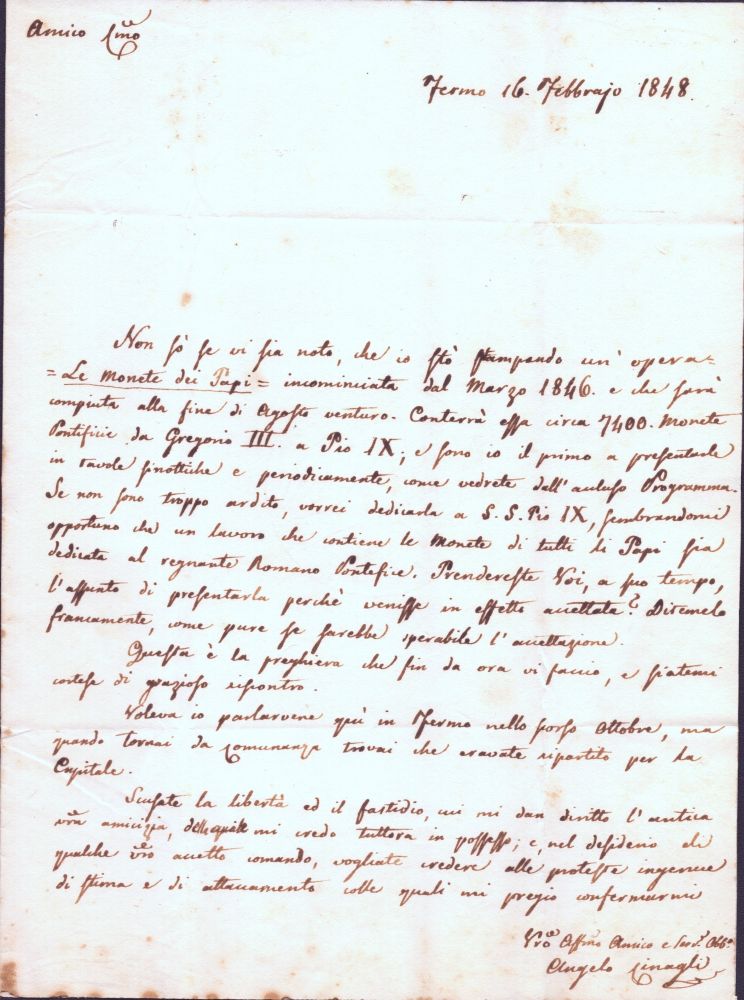 Amico Cmo
Fermo 16. Febbrajo 1848.
Non sò se vi sia noto, che io stò stampando un' opera=
=Le Monete dei Papi= incominciata dal Marzo 1846. e che sarà
compiuta alla fine di Agosto venturo. Conterrà essa circa 7400. Monete
Pontificie da Gregorio III. a Pio IX; e sono io il primo a presentarle
in tavole sinottiche e periodicamente, come vedrete dall' accluso Programma.
Se non sono troppo ardito, vorrei dedicarla a S. S. Pio IX, sembrandomi
opportuno che un lavoro che contiene le Monete di tutti li Papi sia
dedicata al regnante Romano Pontefice. Prendereste Voi, a suo tempo,
l' assunto di presentarla perchè venisse in effetto accettata? Ditemelo
francamente, come pure se sarebbe sperabile l' accettazione.
Questa è la preghiera che fin da ora vi faccio, e siatemi
cortese di grazioso riscontro.
Voleva io parlarvene quì in Fermo nello scorso Ottobre, ma
quando tornai da Comunanza trovai che eravate ripartito per la
Capitale.
Scusate la libertà ed il fastidio, cui mi dan diritto l' antica
vrã amicizia, della quale mi credo tuttora in possesso; e, nel desiderio di
qualche vro accetto comando, vogliate credere alle proteste ingenue
di stima e di attaccamento colle quali mi pregio confermarmi
Vro Affmo Amico e Serv. Obbo
Angelo Cinagli